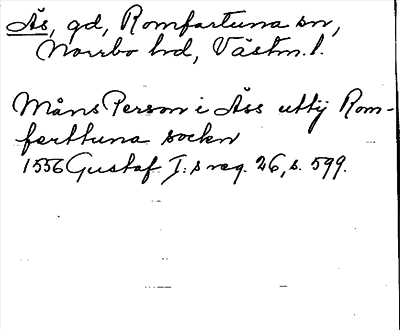 Ås, gd, Romfartuna sn,
Norrbo hd, Västm. l.
Måns Person i Åss uttij Rom-
farttuna sockn
1556 Gustaf I:s reg. 26, s. 599.